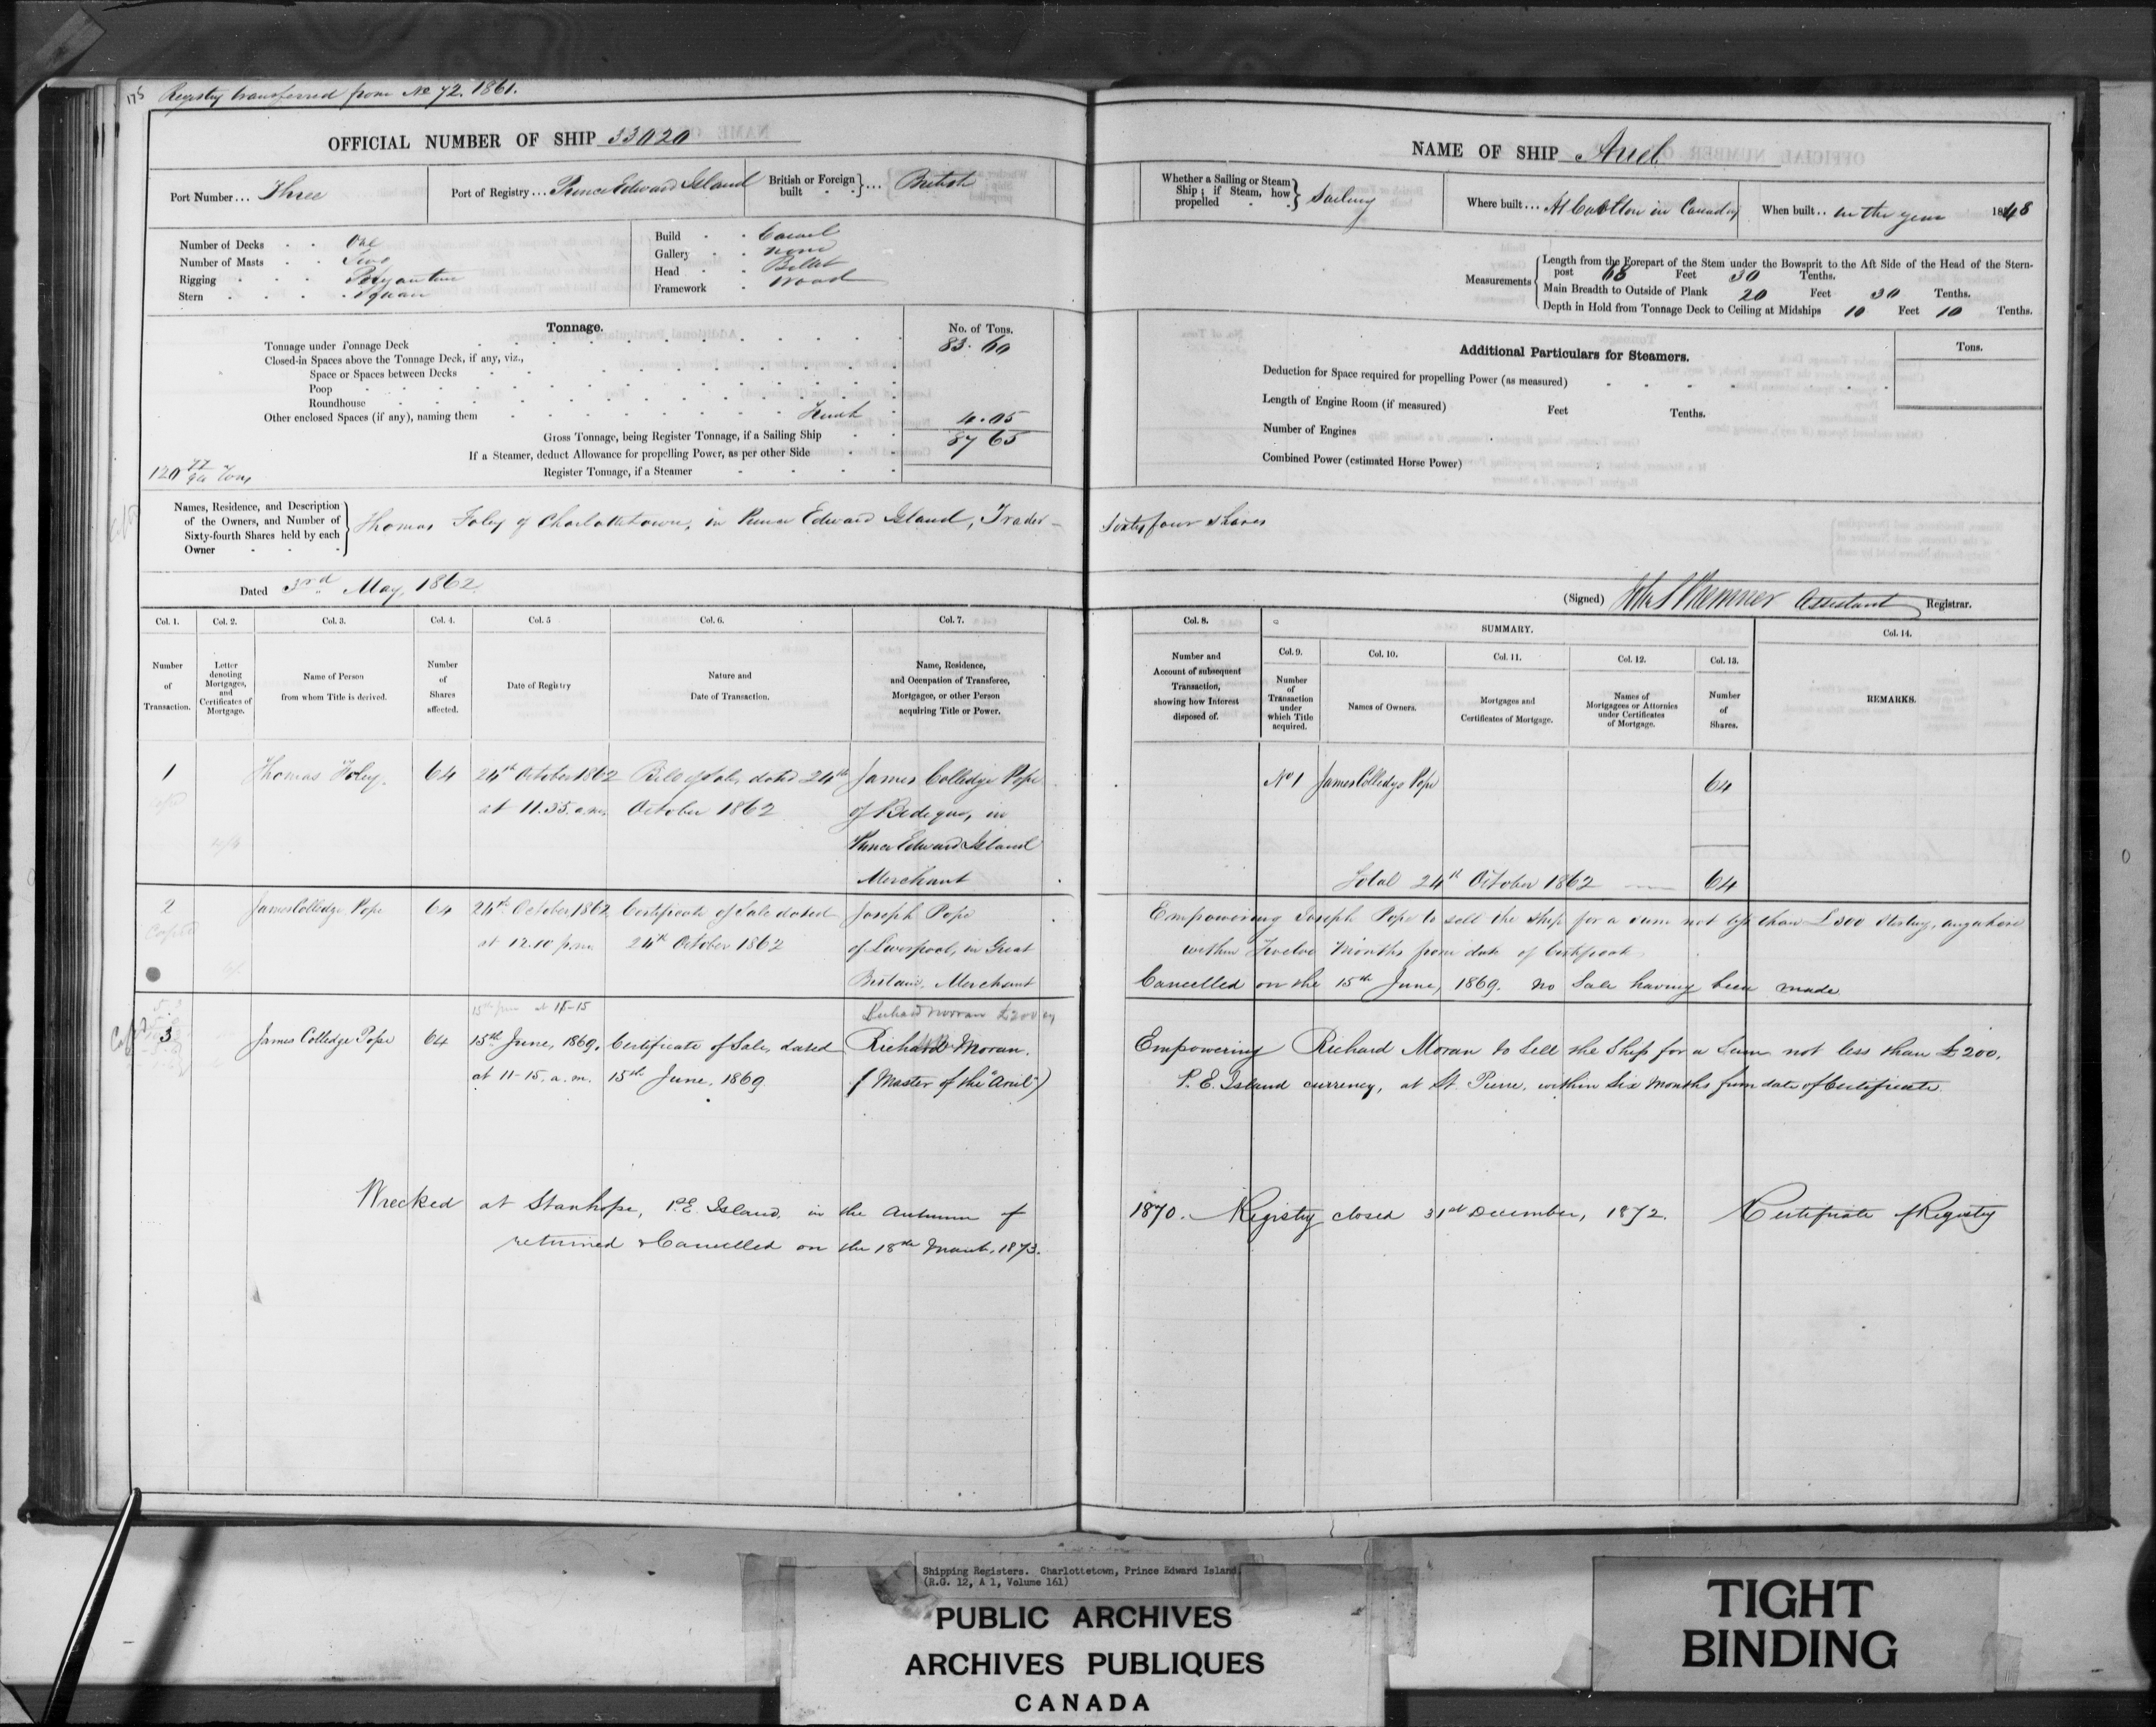 175 Registry transferred from No 72. 1861.
OFFICIAL NUMBER OF SHIP 33020
Port Number... Three
Port of Registry... Prince Edward Island
British or Foreign built } ... British
Number of Decks One
Number of Masts Two
Rigging
Stern Square
Build Carvel
Gallery None
Head Billet
Framework Wood
Tonnage.
No. of Tons.
Tonnage under Tonnage Deck 83. 60
Closed-in Spaces above the Tonnage Deck, if any, viz.,
Space or Spaces between Decks
Poop
Roundhouse
Other enclosed Spaces (if any), naming them 4.05
Gross Tonnage, being Register Tonnage, if a Sailing Ship 87 65
If a Steamer, deduct Allowance for propelling Power, as per other Side
Register Tonnage, if a Steamer
120 Tons
Names, Residence, and Description
of the Owners, and Number of
Sixty-fourth Shares held by each
Owner
Thomas Foley of Charlottetown, in Prince Edward Island, Trader —
Dated 3rd May, 1862.
Col. 1. Col. 2. Col. 3. Col. 4. Col. 5 Col. 6. Col. 7.
Number of Transaction.
Letter denoting Mortgages, and Certificates of Mortgage.
Name of Person from whom Title is derived.
Number of Shares affected.
Date of Registry
Nature and Date of Transaction.
Name, Residence, and Occupation of Transferee, Mortgagee, or other Person acquiring Title or Power.
1 Thomas Foley. 64 24th October 1862 Bill of Sale, dated 24th James Colledge Pope
at 11.35. a.m. October 1862 of Bedeque, in
Prince Edward Island
Merchant
2 James Colledge Pope 64 24th October 1862 Certificate of Sale dated Joseph Pope
at 12.10 p.m. 24th October 1862 of Liverpool, in Great
Britain, Merchant
15th June at 11-15 Richard Moran £200
3 James Colledge Pope 64 15th June, 1869. Certificate of Sale, dated Richard Moran.
at 11-15. a.m. 15th June, 1869. (Master of the "Ariel")
Wrecked at Stanhope, P.E. Island, in the Autumn of
returned & Cancelled on the 18th March, 1873.
NAME OF SHIP Ariel
Whether a Sailing or Steam Ship; if Steam, how propelled } Sailing
Where built... At in Canada
When built.. in the year 1848
Measurements
Length from the Forepart of the Stem under the Bowsprit to the Aft Side of the Head of the Stern-
post 68 Feet 30 Tenths.
Main Breadth to Outside of Plank 20 Feet 30 Tenths.
Depth in Hold from Tonnage Deck to Ceiling at Midships 10 Feet 10 Tenths.
Additional Particulars for Steamers.
Tons.
Deduction for Space required for propelling Power (as measured)
Length of Engine Room (if measured) Feet Tenths.
Number of Engines
Combined Power (estimated Horse Power)
Sixty four shares
(Signed) Assistant Registrar.
Col. 8. SUMMARY. Col. 14.
Col. 9. Col. 10. Col. 11. Col. 12. Col. 13.
Number and Account of subsequent Transaction, showing how Interest disposed of.
Number of Transaction under which Title acquired.
Names of Owners.
Mortgages and Certificates of Mortgage.
Names of Mortgagees or Attornies under Certificates of Mortgage.
Number of Shares.
REMARKS.
No 1 James Colledge Pope 64
Total 24th October 1862 64
Empowering Joseph Pope to sell the Ship for a sum not less than £300 Sterling, anywhere
within Twelve Months from date of Certificate
Cancelled on the 15th June, 1869. No Sale having been made
Empowering Richard Moran to Sell the Ship for a Sum not less than £200,
P. E. Island currency, at St. Pierre, within Six Months from date of Certificate.
1870. Registry closed 31st December, 1872. Certificate of Registry
Shipping Registers. Charlottetown, Prince Edward Island.
(R.G. 12, A 1, Volume 161)
PUBLIC ARCHIVES
ARCHIVES PUBLIQUES
CANADA
TIGHT
BINDING